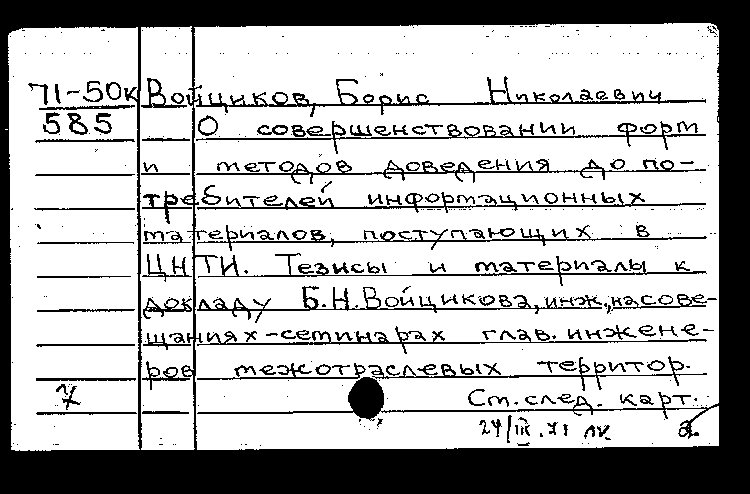 71-50к Войщиков, Борис Николаевич
585 О совершенствовании форм
и методов доведения до по-
требителей информационных
материалов, поступающих в
ЦНТИ. Тезисы и материалы к
докладу Б.Н.Войщикова, инж., на сове-
щаниях-семинарах глав. инжене-
ров межотраслевых территор.
Ст. след. карт.
24/III.71